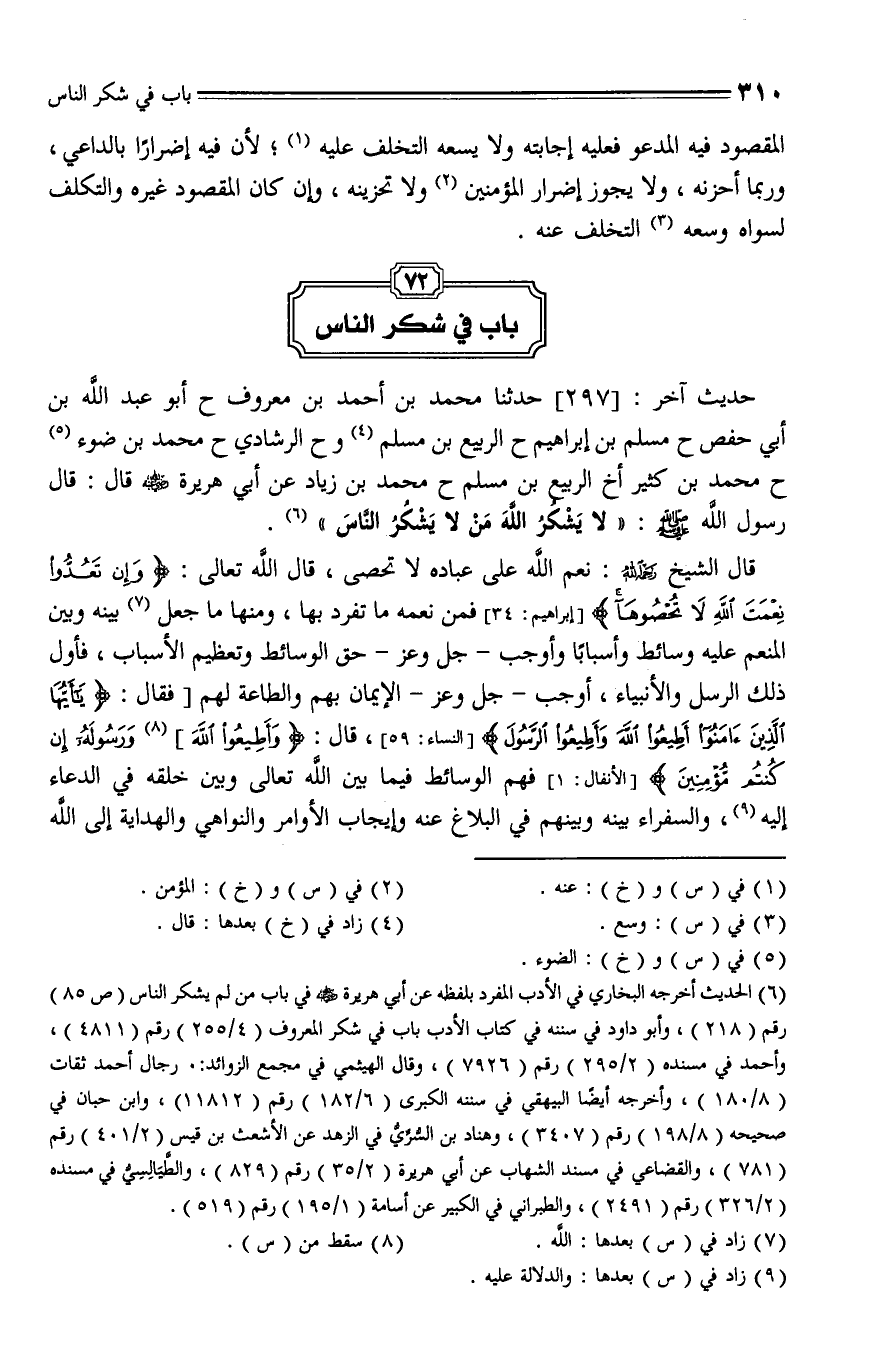 ٣١٠ باب في شكر الناس
المقصود فيه المدعو فعليه إجابته ولا يسعه التخلف عليه (١) ؛ لأن فيه إضرارًا بالداعي ،
وربما أحزنه ، ولا يجوز إضرار المؤمنين (٢) ولا تحزينه ، وإن كان المقصود غيره والتكلف
لسواه وسعه (٣) التخلف عنه .
٧٢
باب في شكر الناس
حديث آخر : [٢٩٧] حدثنا محمد بن أحمد بن معروف ح أبو عبد اللَّه بن
أبي حفص ح مسلم بن إبراهيم ح الربيع بن مسلم (٤) و ح الرشادي ح محمد بن ضوء (٥)
ح محمد بن كثير أخ الربيع بن مسلم ح محمد بن زياد عن أبي هريرة ﵁ قال : قال
رسول اللَّه ﷺ : « لا يَشْكُرُ اللَّهَ مَنْ لا يَشْكُرُ النَّاسَ » (٦) .
قال الشيخ ﵀ : نعم اللَّه على عباده لا تحصى ، قال اللَّه تعالى : ﴿ وَإِن تَعُدُّواْ
نِعْمَتَ ٱللَّهِ لَا تُحْصُوهَآ ﴾ [إبراهيم: ٣٤] فمن نعمه ما تفرد بها ، ومنها ما جعل (٧) بينه وبين
المنعم عليه وسائط وأسبابًا وأوجب - جل وعز - حق الوسائط وتعظيم الأسباب ، فأول
ذلك الرسل والأنبياء ، أوجب - جل وعز - الإيمان بهم والطاعة لهم [ فقال : ﴿ يَٰٓأَيُّهَا
ٱلَّذِينَ ءَامَنُوٓاْ أَطِيعُواْ ٱللَّهَ وَأَطِيعُواْ ٱلرَّسُولَ ﴾ [النساء: ٥٩] ، قال : ﴿ وَأَطِيعُواْ ٱللَّهَ ] (٨) وَرَسُولَهُۥٓ إِن
كُنتُم مُّؤْمِنِينَ ﴾ [الأنفال: ١] فهم الوسائط فيما بين اللَّه تعالى وبين خلقه في الدعاء
إليه (٩) ، والسفراء بينه وبينهم في البلاغ عنه وإيجاب الأوامر والنواهي والهداية إلى اللَّه
(١) في ( س ) و ( خ ) : عنه . (٢) في ( س ) و ( خ ) : المؤمن .
(٣) في ( س ) : وسع . (٤) زاد في ( خ ) بعدها : قال .
(٥) في ( س ) و ( خ ) : الضوء .
(٦) الحديث أخرجه البخاري في الأدب المفرد بلفظه عن أبي هريرة ﵁ في باب من لم يشكر الناس ( ص ٨٥ )
رقم ( ٢١٨ ) ، وأبو داود في سننه في كتاب الأدب باب في شكر المعروف ( ٢٥٥/٤ ) رقم ( ٤٨١١ ) ،
وأحمد في مسنده ( ٢٩٥/٢ ) رقم ( ٧٩٢٦ ) ، وقال الهيثمي في مجمع الزوائد:٠ رجال أحمد ثقات
( ١٨٠/٨ ) ، وأخرجه أيضًا البيهقي في سننه الكبرى ( ١٨٢/٦ ) رقم ( ١١٨١٢) ، وابن حبان في
صحيحه ( ١٩٨/٨ ) رقم ( ٣٤٠٧ ) ، وهناد بن السُّرِّيُّ في الزهد عن الأشعث بن قيس ( ٤٠١/٢ ) رقم
( ٧٨١ ) ، والقضاعي في مسند الشهاب عن أبي هريرة ( ٣٥/٢ ) رقم ( ٨٢٩ ) ، والطَّيَالِسِيُّ في مسنده
( ٣٢٦/٢ ) رقم ( ٢٤٩١ ) ، والطبراني في الكبير عن أسامة ( ١٩٥/١ ) رقم ( ٥١٩ ) .
(٧) زاد في ( س ) بعدها : اللَّه . (٨) سقط من ( س ) .
(٩) زاد في ( س ) بعدها : والدلالة عليه .